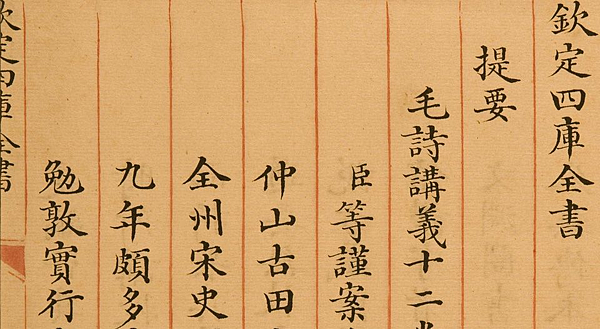 欽定四庫全書
提要
毛詩講義十二
臣等謹案
仲山古田
全州宋史
九年頗多
勉敦實行
欽定四庫全書